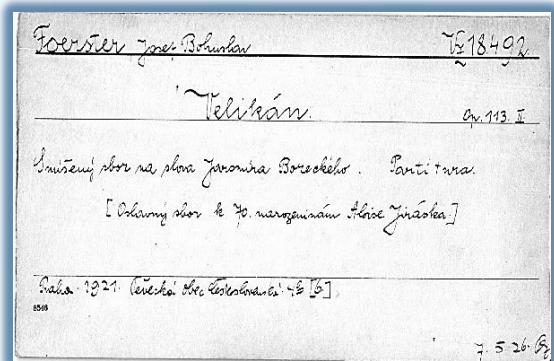 Foerster Josef Bohuslav
Velikán. Op. 113. II
Smíšený sbor na slova Jaromíra Boreckého. Partitura.
[Oslavný sbor k 70. narozeninám Aloise Jiráska.]
Praha. 1921. Pěvecká obec Českoslovanská. [6]
7. 5. 26.